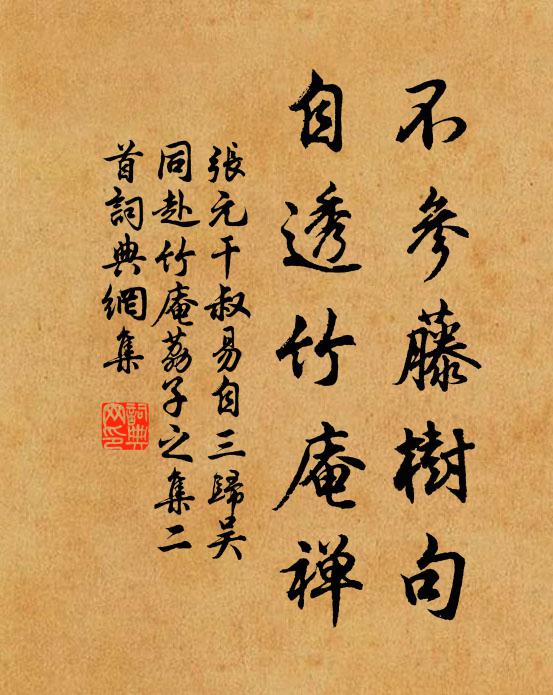 不參藤樹句
自透竹庵禅
張元干叔易自三歸吴
同赴竹庵荔子之集二
首詞典網集
詞典
网印